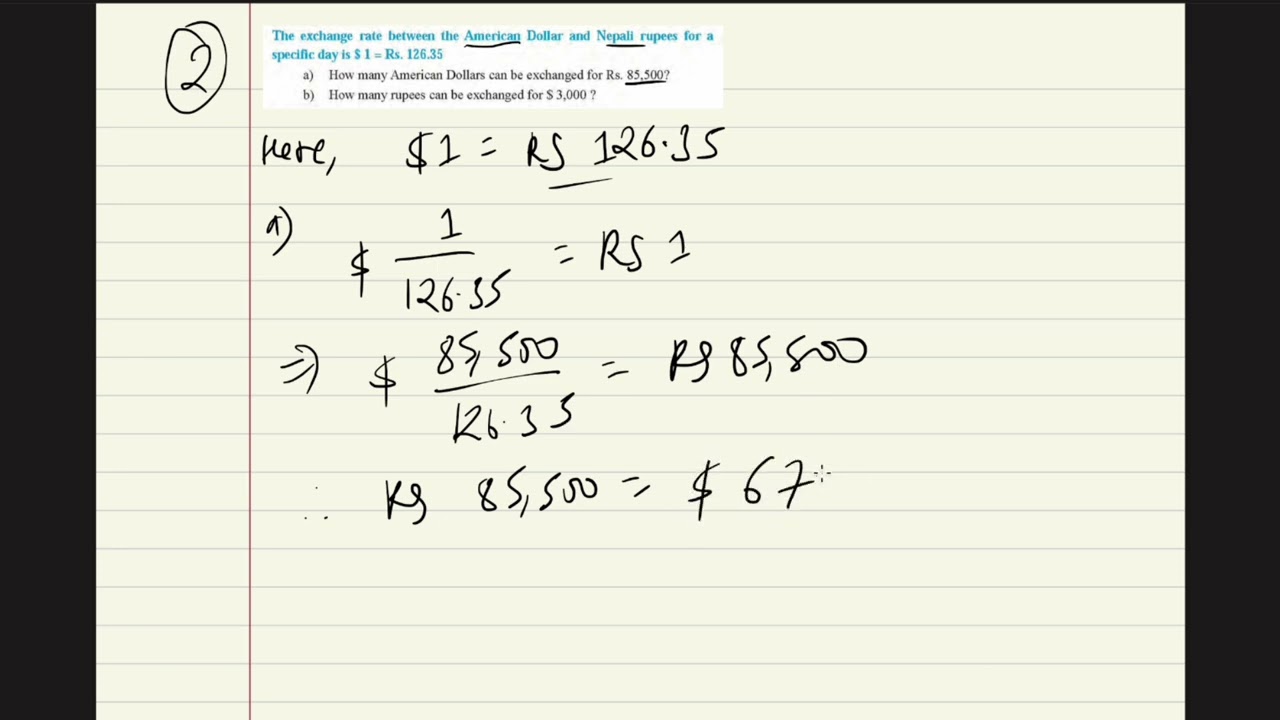 2
The exchange rate between the American Dollar and Nepali rupees for a
specific day is $ 1 = Rs. 126.35
a) How many American Dollars can be exchanged for Rs. 85,500?
b) How many rupees can be exchanged for $ 3,000 ?
Here, $1 = RS 126.35
a) $ 1/126.35 = RS 1
⇒) $ 85,500/126.35 = RS 85,500
∴ RS 85,500 = $ 67